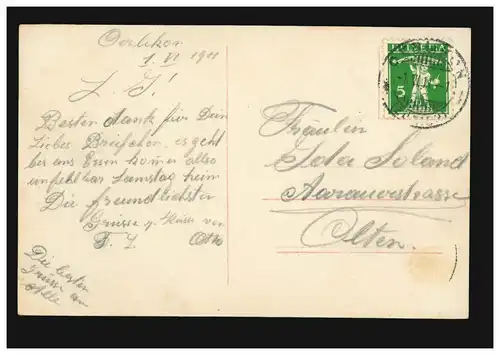 Oerlikon
1. VI 1911
L. I!
Besten Dank für Dein
Liebes Briefchen, es geht
bei uns Essen kommen also
unfehlbar Samstag heim
Die freundlichsten
Grüsse u. Küsse von
F. J. Otto
Die besten
Grüsse an
Alle
HELVETIA
5
Fräulein
Ida Soland
Aarauerstrasse
Olten.